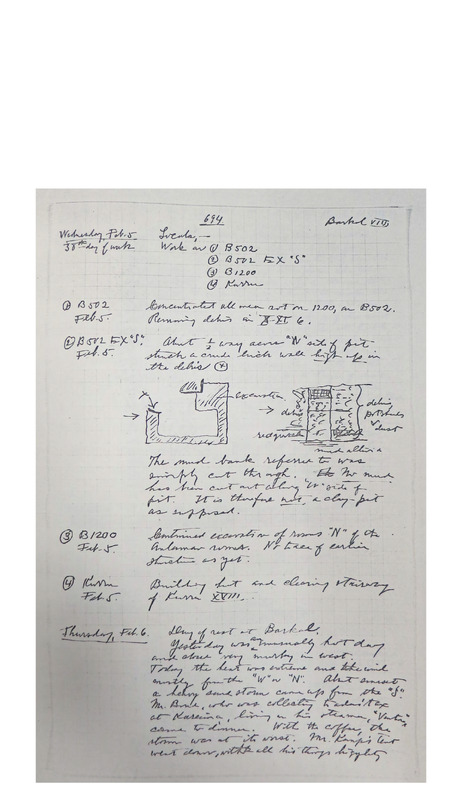 694
Barkal VIII
Wednesday Feb. 5. Locals,—
38th day of work Work on ① B502
② B502 EX "S"
③ B1200
④ Kurru
① B502 Concentrated all men not on 1200, on B502.
Feb. 5. Removing debris in X-XI 6.
② B502 EX "S". About ½ way across "W" side of pit
Feb. 5. struck a crude brick wall high up in
the debris
excavation
debris
debris
potsherds
& dust
mud
The mud bank referred to was
simply cut through. The mud
has been cut out along "W" side of
pit. It is therefore not a clay-pit
as supposed.
③ B1200 Continued excavation of rooms "N" of the
Feb. 5 rooms. No trace of earlier
structure as yet.
④ Kurru Building hut and clearing stairway
Feb 5. of Kurru XVIII.
Thursday, Feb. 6. Day of rest at Barkal.
Yesterday was unusually hot day
and above very murky in west.
Today the heat was extreme and the wind
mostly from the "W" or "N". About sunset
a heavy sand storm came up from the "S"
Mr. who was collecting
at Kareima, living in his steamer,
came to dinner. With the coffee, the
storm was at its worst. Mr. Kemp's tent
went down, with all his things